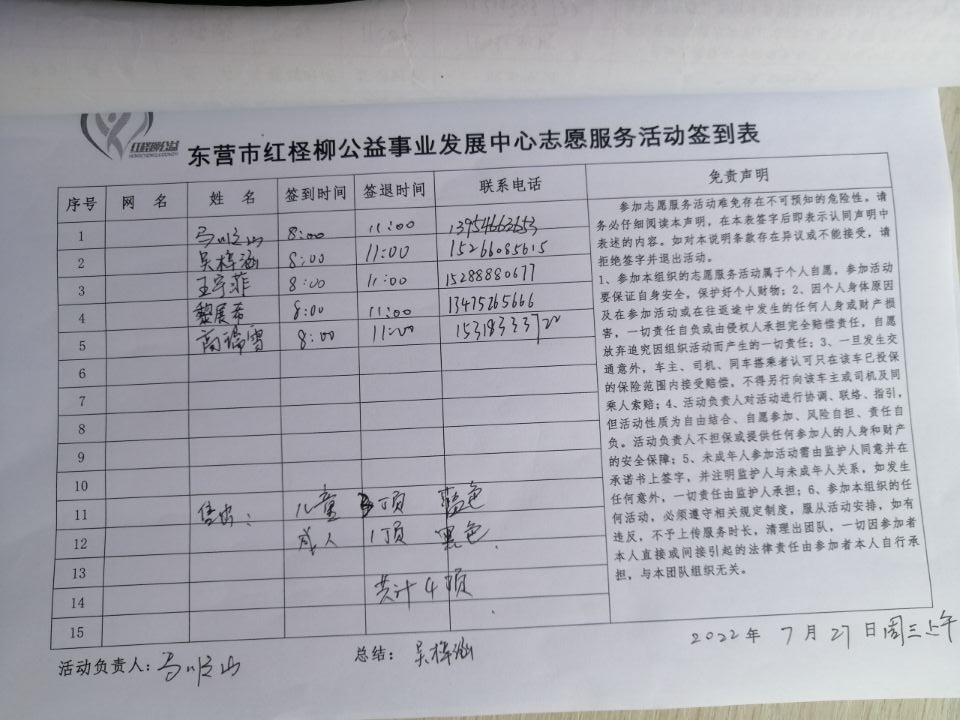 红柽柳公益
东营市红柽柳公益事业发展中心志愿服务活动签到表
序号 网 名 姓 名 签到时间 签退时间 联系电话 免责声明
1 马顺山 8:00 11:00
2 吴梓涵 8:00 11:00 15266085615
3 王宇菲 8:00 11:00 15288880677
4 黎展希 8:00 11:00 13475265666
5 商瑞雪 8:00 11:00 15319333722
6
7
8
9
10
11 售出: 儿童 3顶 蓝色
12 成人 1顶 黑色
13
14 共计4顶
15
参加志愿服务活动难免存在不可预知的危险性,请
务必仔细阅读本声明,在本表签字后即表示认同声明中
表述的内容。如对本说明条款存在异议或不能接受,请
拒绝签字并退出活动。
1、参加本组织的志愿服务活动属于个人自愿,参加活动
要保证自身安全,保护好个人财物;2、因个人身体原因
及在参加活动或在往返途中发生的任何人身或财产损
害,一切责任自负或由侵权人承担完全赔偿责任,自愿
放弃追究因组织活动而产生的一切责任;3、一旦发生交
通意外,车主、司机、同车搭乘者认可只在该车已投保
的保险范围内接受赔偿,不得另行向该车主或司机及同
乘人索赔;4、活动负责人对活动进行协调、联络、指引,
但活动性质为自由结合、自愿参加、风险自担、责任自
负。活动负责人不担保或提供任何参加人的人身和财产
的安全保障;5、未成年人参加活动需由监护人同意并在
承诺书上签字,并注明监护人与未成年人关系,如发生
任何意外,一切责任由监护人承担;6、参加本组织的任
何活动,必须遵守相关规定制度,服从活动安排,如有
违反,不予上传服务时长,清理出团队,一切因参加者
本人直接或间接引起的法律责任由参加者本人自行承
担,与本团队组织无关。
活动负责人:马顺山 总结: 吴梓涵 2022年 7月27日周三上午